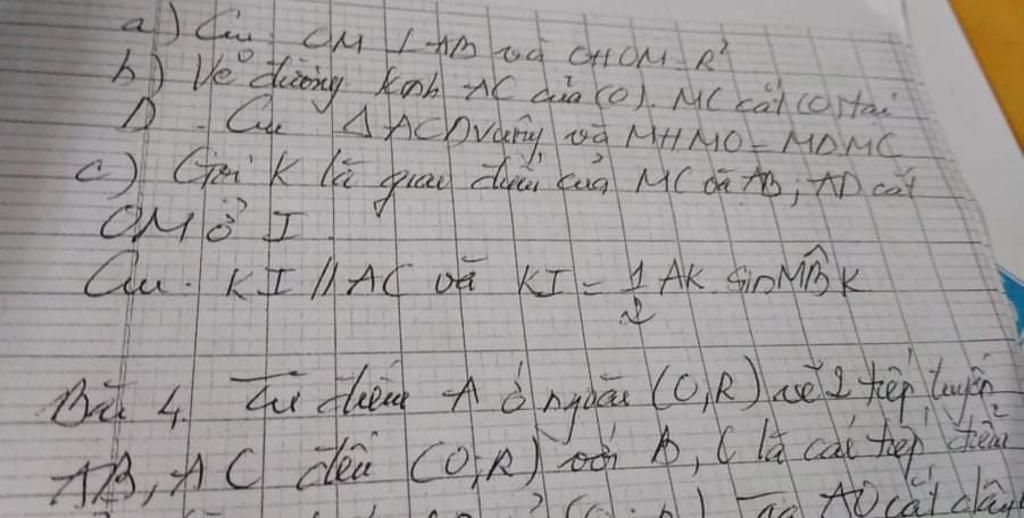 a) Cm. OM ⊥ AB và OH.OM = R²
b) Vẽ đường kính AC của (O). MC cắt (O) tại
D. Cm ΔACD vuông và MH.MO = MD.MC
c) Gọi K là giao điểm của MC và AB; AD cắt
OM ở I
Cm. KI // AC và KI = 1/2 AK sin MBK
Bài 4. Từ điểm A ở ngoài (O,R) vẽ 2 tiếp tuyến
AB, AC đến (O;R) với B, C là các tiếp điểm
AO cắt dây